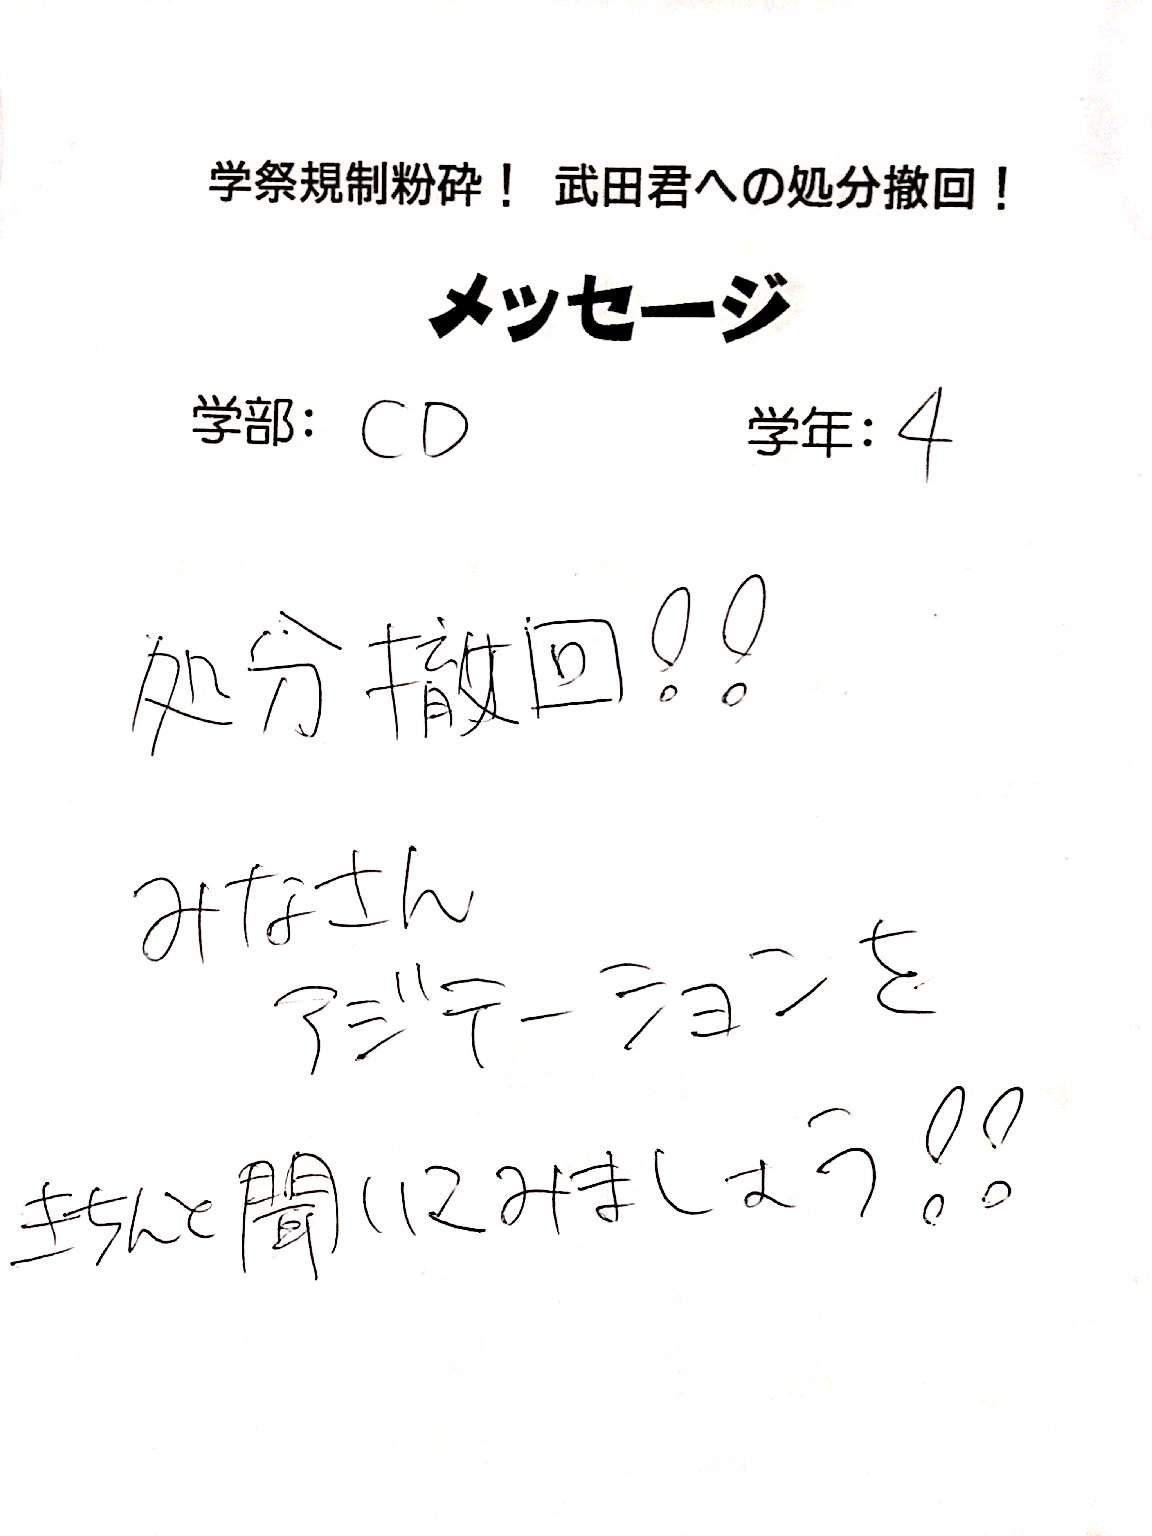 学祭規制粉砕！ 武田君への処分撤回！
メッセージ
学部： CD 学年： 4
処分撤回！！
みなさん
アジテーションを
きちんと聞いてみましょう！！